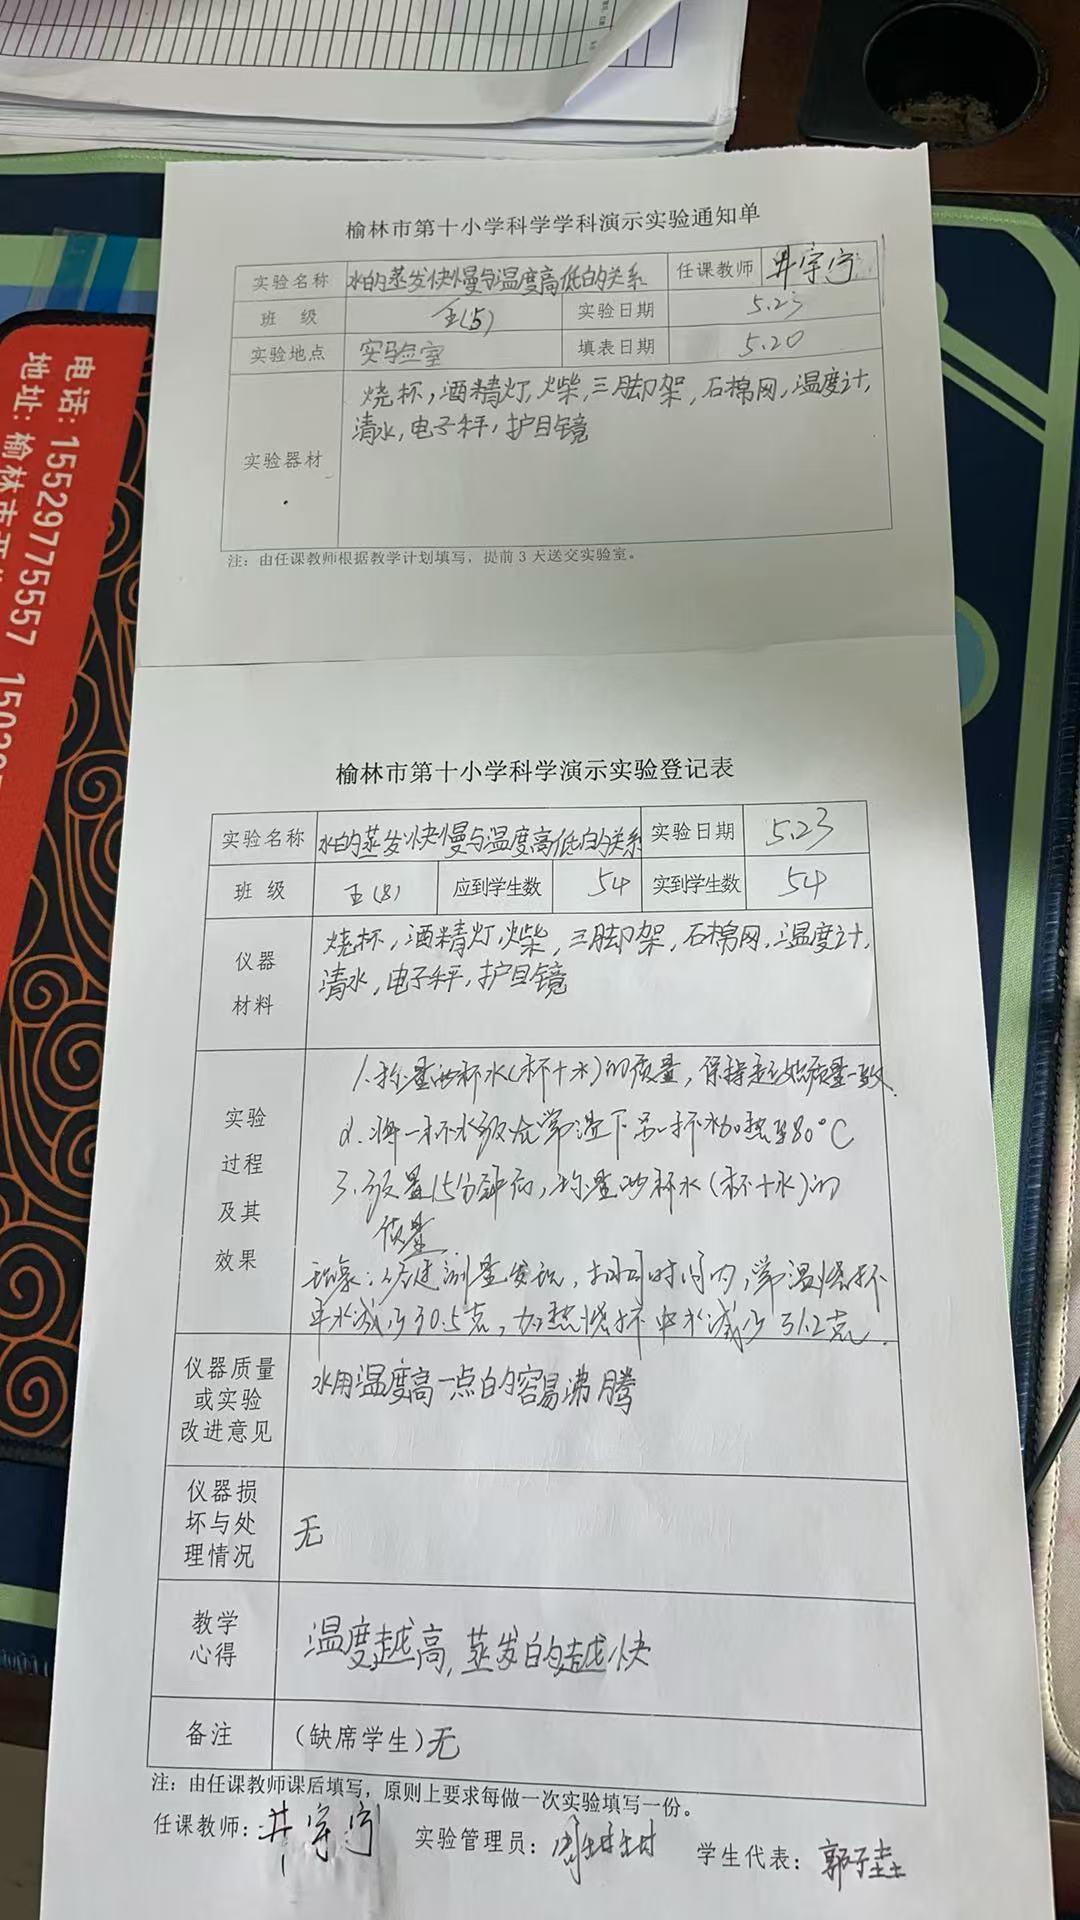 榆林市第十小学科学学科演示实验通知单
实验名称 水的蒸发快慢与温度高低的关系 任课教师 井宇宁
班 级 五(5) 实验日期 5.23
实验地点 实验室 填表日期 5.20
实验器材 烧杯,酒精灯,火柴,三脚架,石棉网,温度计,
清水,电子秤,护目镜
注:由任课教师根据教学计划填写,提前3天送交实验室。
电话:15529775557
地址:榆林市
榆林市第十小学科学演示实验登记表
实验名称 水的蒸发快慢与温度高低的关系 实验日期 5.23
班 级 五(8) 应到学生数 54 实到学生数 54
仪器
材料
烧杯,酒精灯,火柴,三脚架,石棉网,温度计,
清水,电子秤,护目镜
实验
过程
及其
效果
1.称量两杯水(杯+水)的质量,保持起始质量一致
2.将一杯水放在常温下另一杯水加热至80°C
3.放置15分钟后,称量两杯水(杯+水)的
质量
现象:经过测量发现,相同时间内,常温烧杯
中水减少了0.5克,加热烧杯中水减少了1.2克.
仪器质量
或实验
改进意见
水用温度高一点的容易沸腾
仪器损
坏与处
理情况
无
教学
心得
温度越高,蒸发的越快
备注 (缺席学生)无
注:由任课教师课后填写,原则上要求每做一次实验填写一份。
任课教师:井宇宁 实验管理员: 学生代表:郭子垚